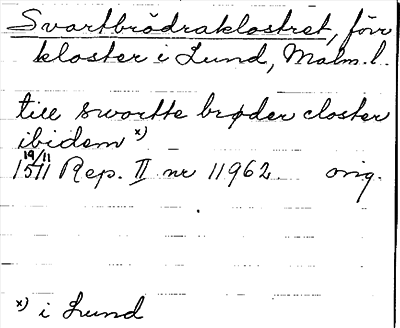 Svartbrödraklostret, förr
kloster i Lund, Malm. l.
till swortte brøder closter
ibidem x)
19/11
1511 Rep. II nr 11962 orig.
x) i Lund